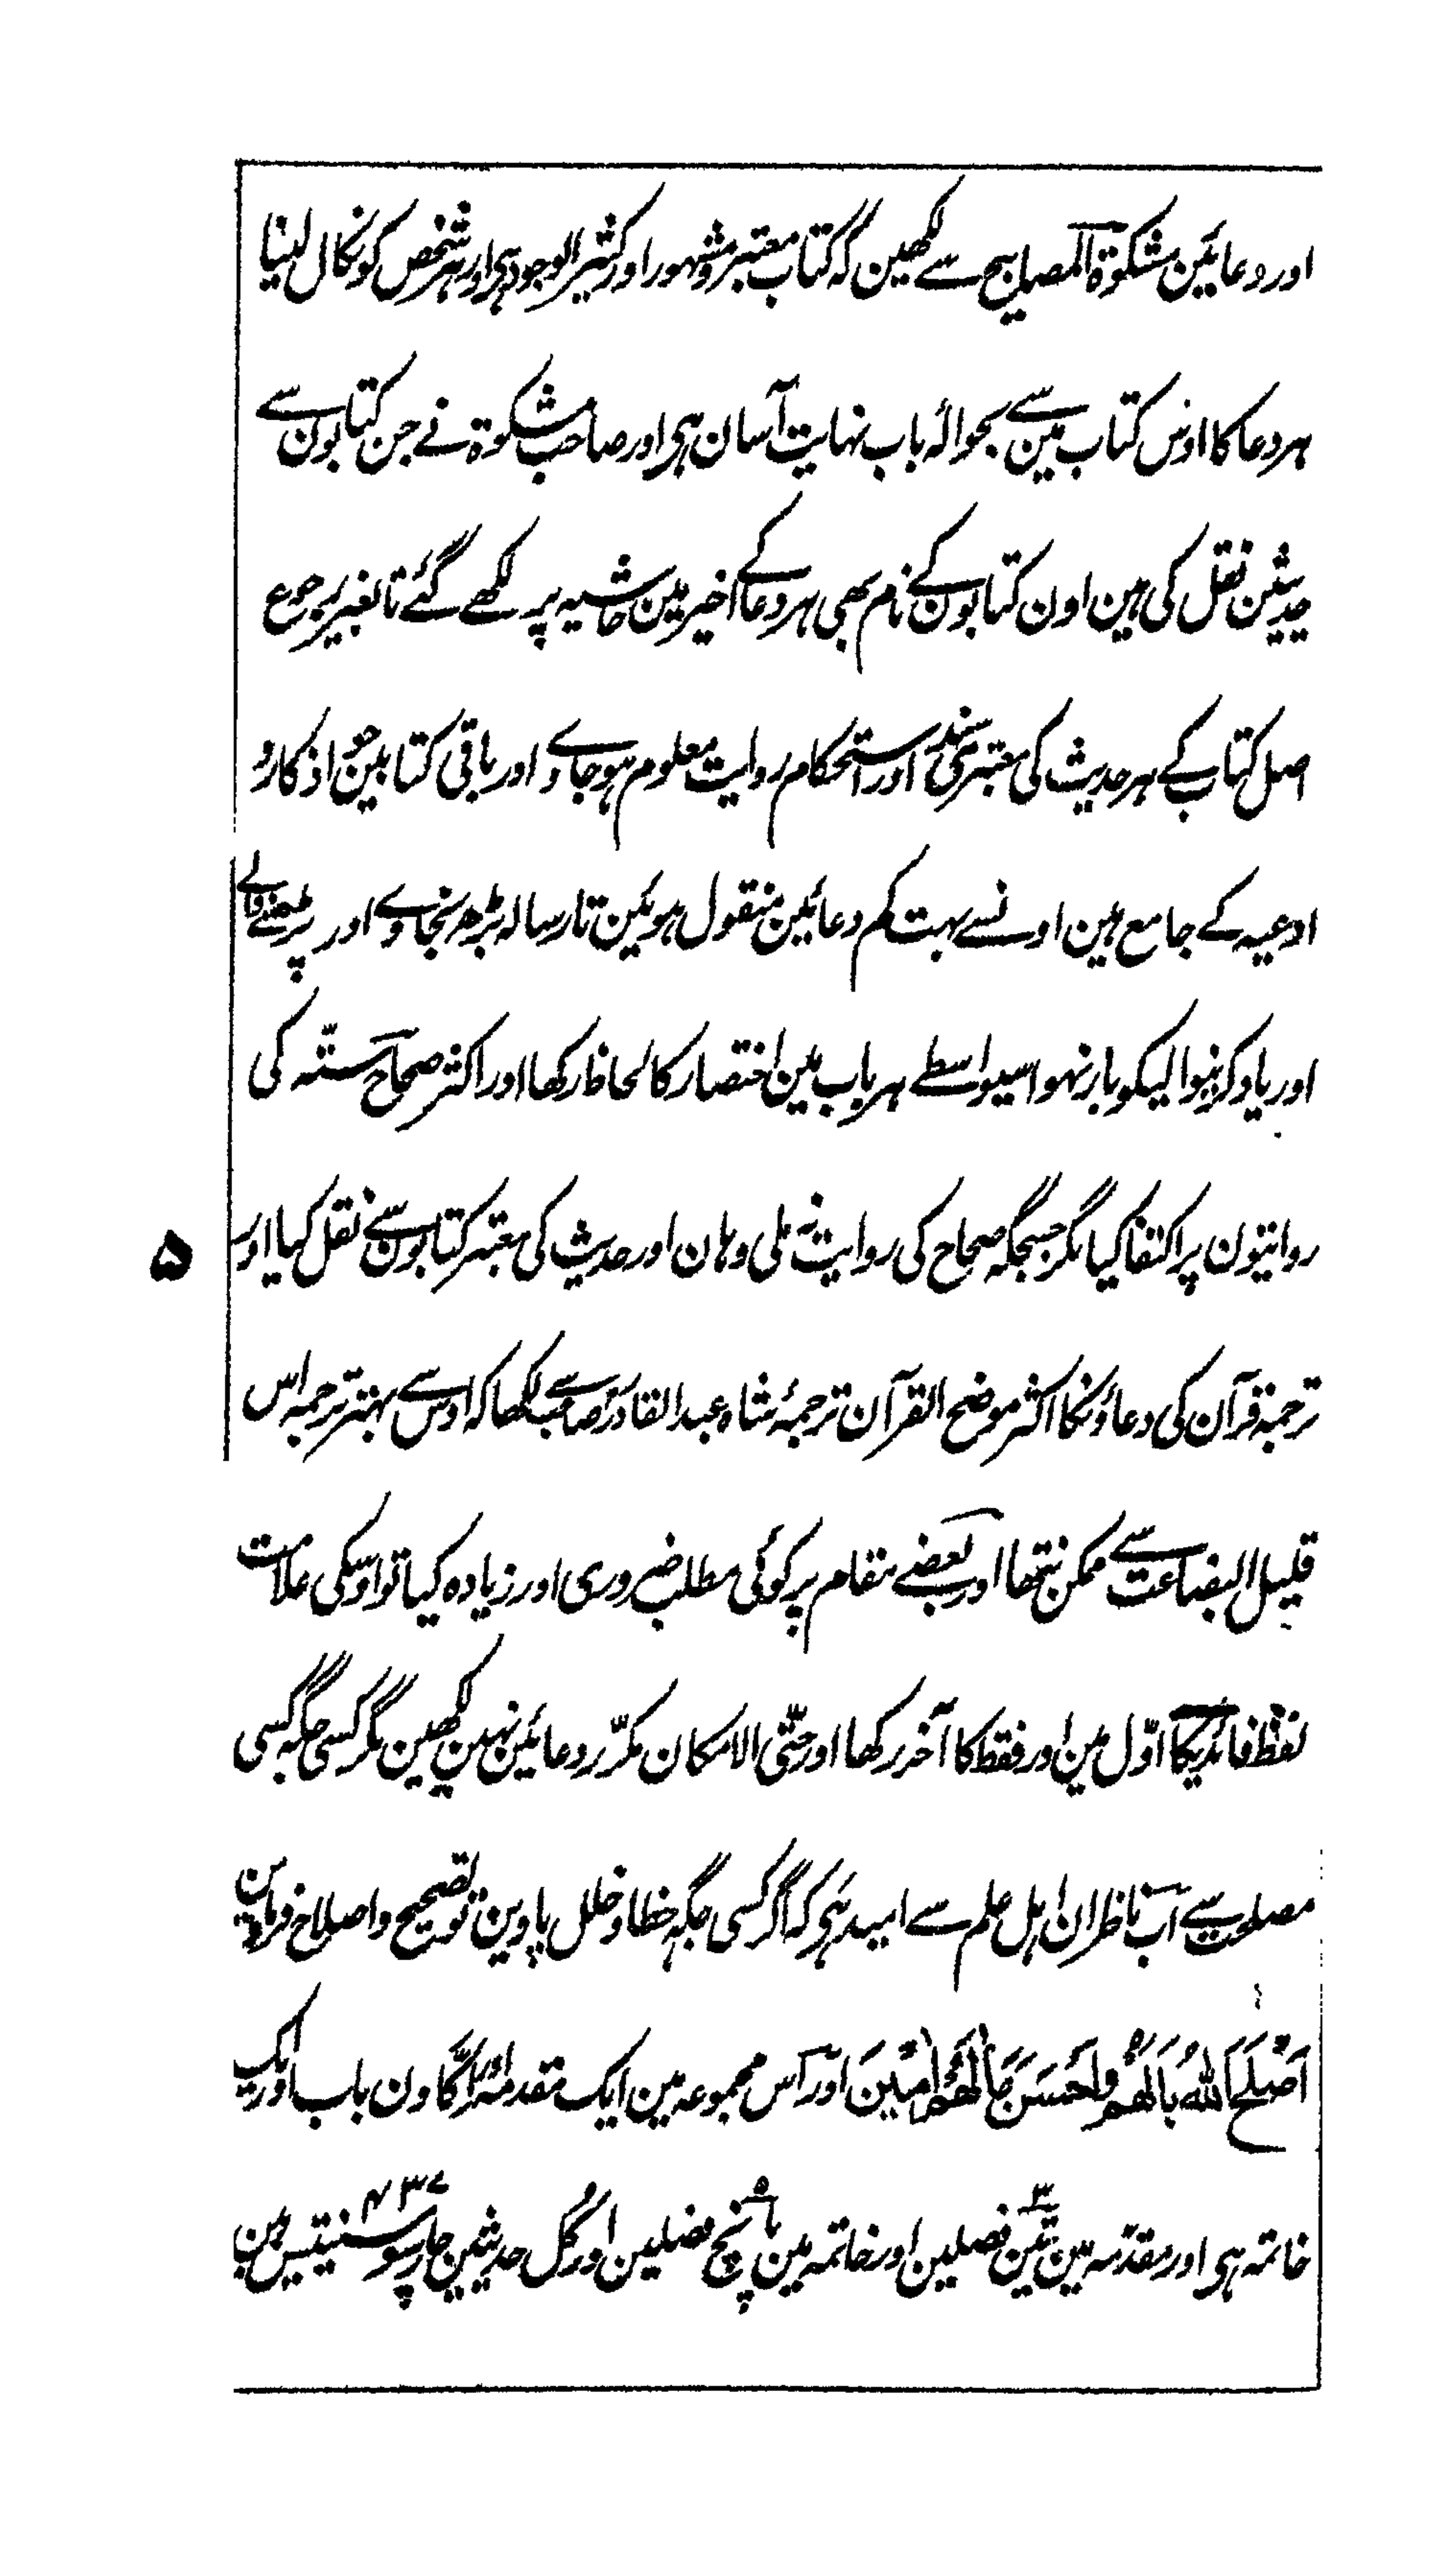 اور دعائین مشکوٰۃ المصابیح سے لکھین کہ کتاب معتبر و مشہور اور کثیر الوجود ہی اور ہر شخص کو نکال لینا
ہر دعا کا اوس کتاب مین سے بحوالۂ باب نہایت آسان ہی اور صاحب مشکوۃ نے جن کتابون سے
حدیثین نقل کی ہین اون کتابون کے نام بھی ہر دعا کے اخیر مین حاشیہ پر لکھے گئے تا بغیر رجوع
اصل کتاب کے ہر حدیث کی معتبری سند اور استحکام روایت معلوم ہو جاوے اور باقی کتابین جو اذکار و
ادعیہ کے جامع ہین اونسے بہت کم دعائین منقول ہوئین تا رسالہ بڑھ نجاوے اور پڑھنے والے
اور یاد کرنیوالیکو بار نہو اسیواسطے ہر باب مین اختصار کا لحاظ رکھا اور اکثر صحاح ستّہ کی
روایتون پر اکتفا کیا مگر جسجگہ صحاح کی روایت نہ ملی وہان اور حدیث کی معتبر کتابون سے نقل کیا اور
۵
ترجمہ قرآن کی دعاؤنکا اکثر موضح القرآن ترجمۂ شاہ عبد القادر صاحب سے لکھا کہ اوس سے بہتر ترجمہ اس
قلیل البضاعت سے ممکن نتھا اور بعضے مقام پر کوئی مطلب ضروری اور زیادہ کیا تو اوسکی علامت
لفظ فائدیکا اوّل مین اور فقط کا آخر رکھا اور حتّی الامکان مکرّر دعائین نہین لکھین مگر کسی جگہ کسی
مصلحت سے اب ناظران اہل علم سے امید ہی کہ اگر کسی جگہ خطا و خلل پاوین تو تصحیح و اصلاح فرماوین
اَصْلَحَ اللّٰہُ بَالَھُمْ وَاَحْسَنَ مَاٰلَھُمْ اٰمِیْنَ اور اس مجموعہ مین ایک مقدمہ اور اکاون باب اور ایک
خاتمہ ہی اور مقدمہ مین تین ۳ فصلین اور خاتمہ مین پانچ ۵ فصلین اور کل حدیثین چار سو سینتیس ۴۳۷ ہین